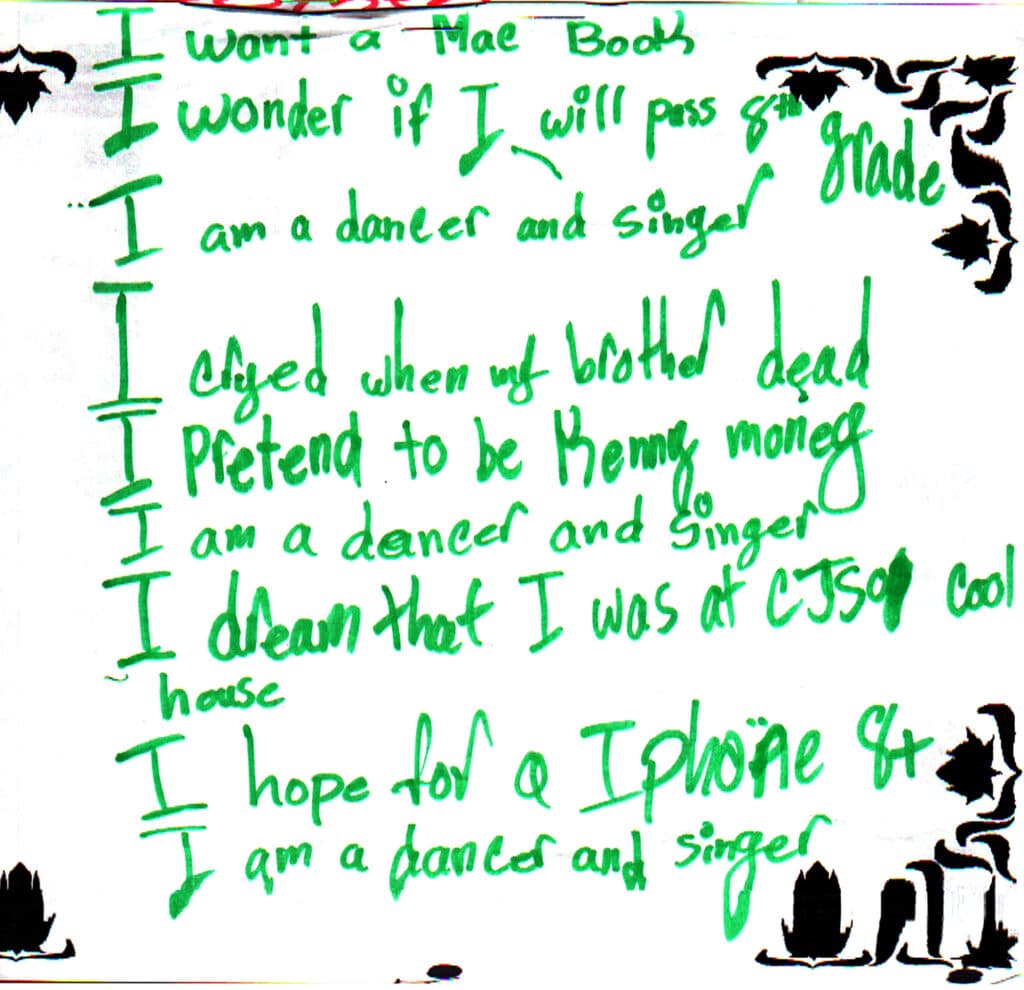 I want a Mac Book
I wonder if I will pass 8th grade
I am a dancer and singer
I cryed when my brother dead
I Pretend to be Kenny money
I am a dancer and singer
I dream that I was at CJSO cool
house
I hope for a Iphone 8+
I am a dancer and singer